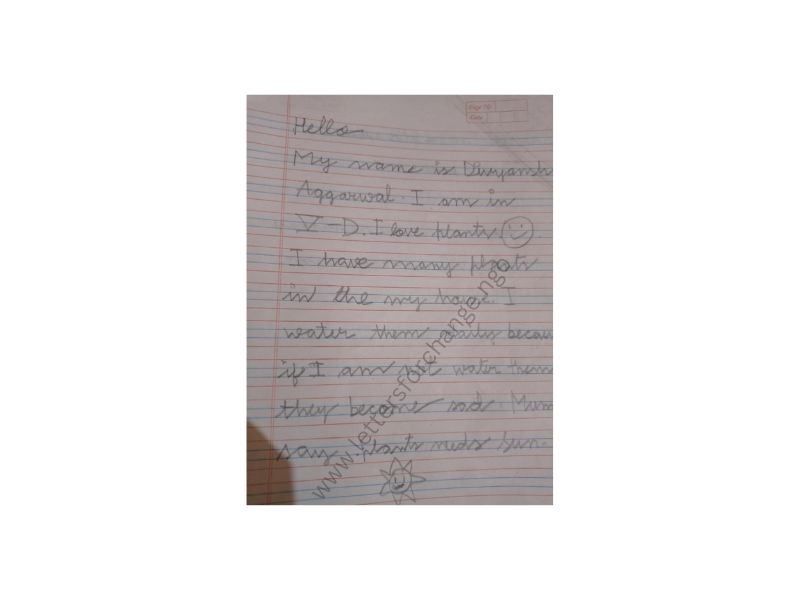 Page No.
Date
Hello
My name is Divyansh
Aggarwal. I am in
V-D. I love plants
I have many plants
in the my house I
water them daily becau
if I am not water them
they become sad. Mum
say plants neds sun.
www.lettersforchange.ngo